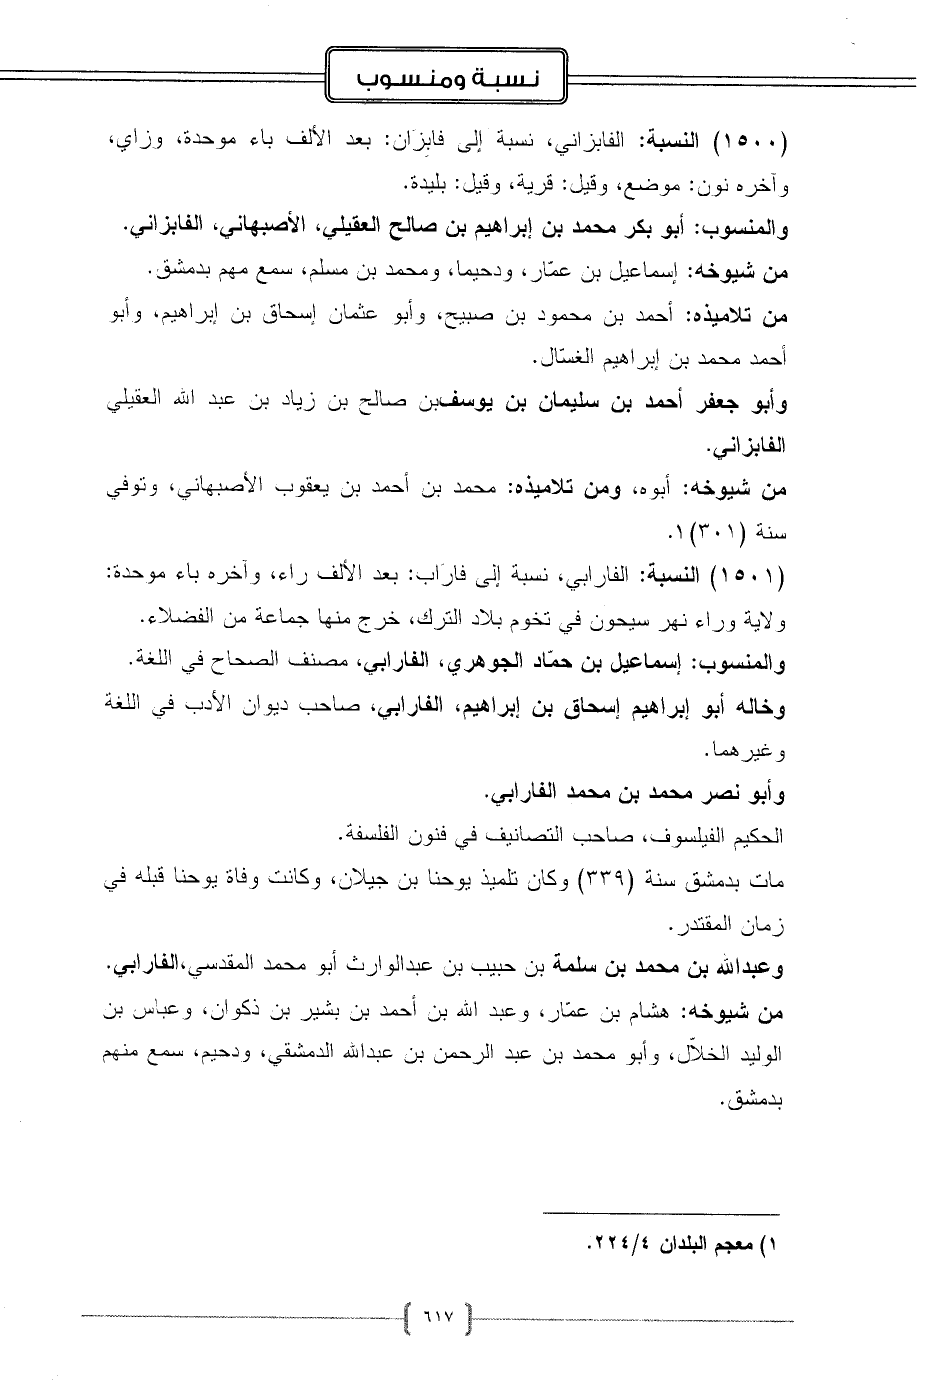 نسبة ومنسوب
(١٥٠٠) النسبة: الفابزاني، نسبة إلى فابِزَان: بعد الألف باء موحدة، وزاي،
وآخره نون: موضع، وقيل: قرية، وقيل: بليدة.
والمنسوب: أبو بكر محمد بن إبراهيم بن صالح العقيلي، الأصبهاني، الفابزاني.
من شيوخه: إسماعيل بن عمّار، ودحيما، ومحمد بن مسلم، سمع مهم بدمشق.
من تلاميذه: أحمد بن محمود بن صبيح، وأبو عثمان إسحاق بن إبراهيم، وأبو
أحمد محمد بن إبراهيم الغسّال.
وأبو جعفر أحمد بن سليمان بن يوسفبن صالح بن زياد بن عبد الله العقيلي
الفابزاني.
من شيوخه: أبوه، ومن تلاميذه: محمد بن أحمد بن يعقوب الأصبهاني، وتوفي
سنة (٣٠١)١.
(١٥٠١) النسبة: الفارابي، نسبة إلى فارَاب: بعد الألف راء، وآخره باء موحدة:
ولاية وراء نهر سيحون في تخوم بلاد الترك، خرج منها جماعة من الفضلاء.
والمنسوب: إسماعيل بن حمّاد الجوهري، الفارابي، مصنف الصحاح في اللغة.
وخاله أبو إبراهيم إسحاق بن إبراهيم، الفارابي، صاحب ديوان الأدب في اللغة
وغيرهما.
وأبو نصر محمد بن محمد الفارابي.
الحكيم الفيلسوف، صاحب التصانيف في فنون الفلسفة.
مات بدمشق سنة (٣٣٩) وكان تلميذ يوحنا بن جيلان، وكانت وفاة يوحنا قبله في
زمان المقتدر.
وعبدالله بن محمد بن سلمة بن حبيب بن عبدالوارث أبو محمد المقدسي،الفارابي.
من شيوخه: هشام بن عمّار، وعبد الله بن أحمد بن بشير بن ذكوان، وعباس بن
الوليد الخلاّل، وأبو محمد بن عبد الرحمن بن عبدالله الدمشقي، ودحيم، سمع منهم
بدمشق.
١) معجم البلدان ٢٢٤/٤.
٦١٧